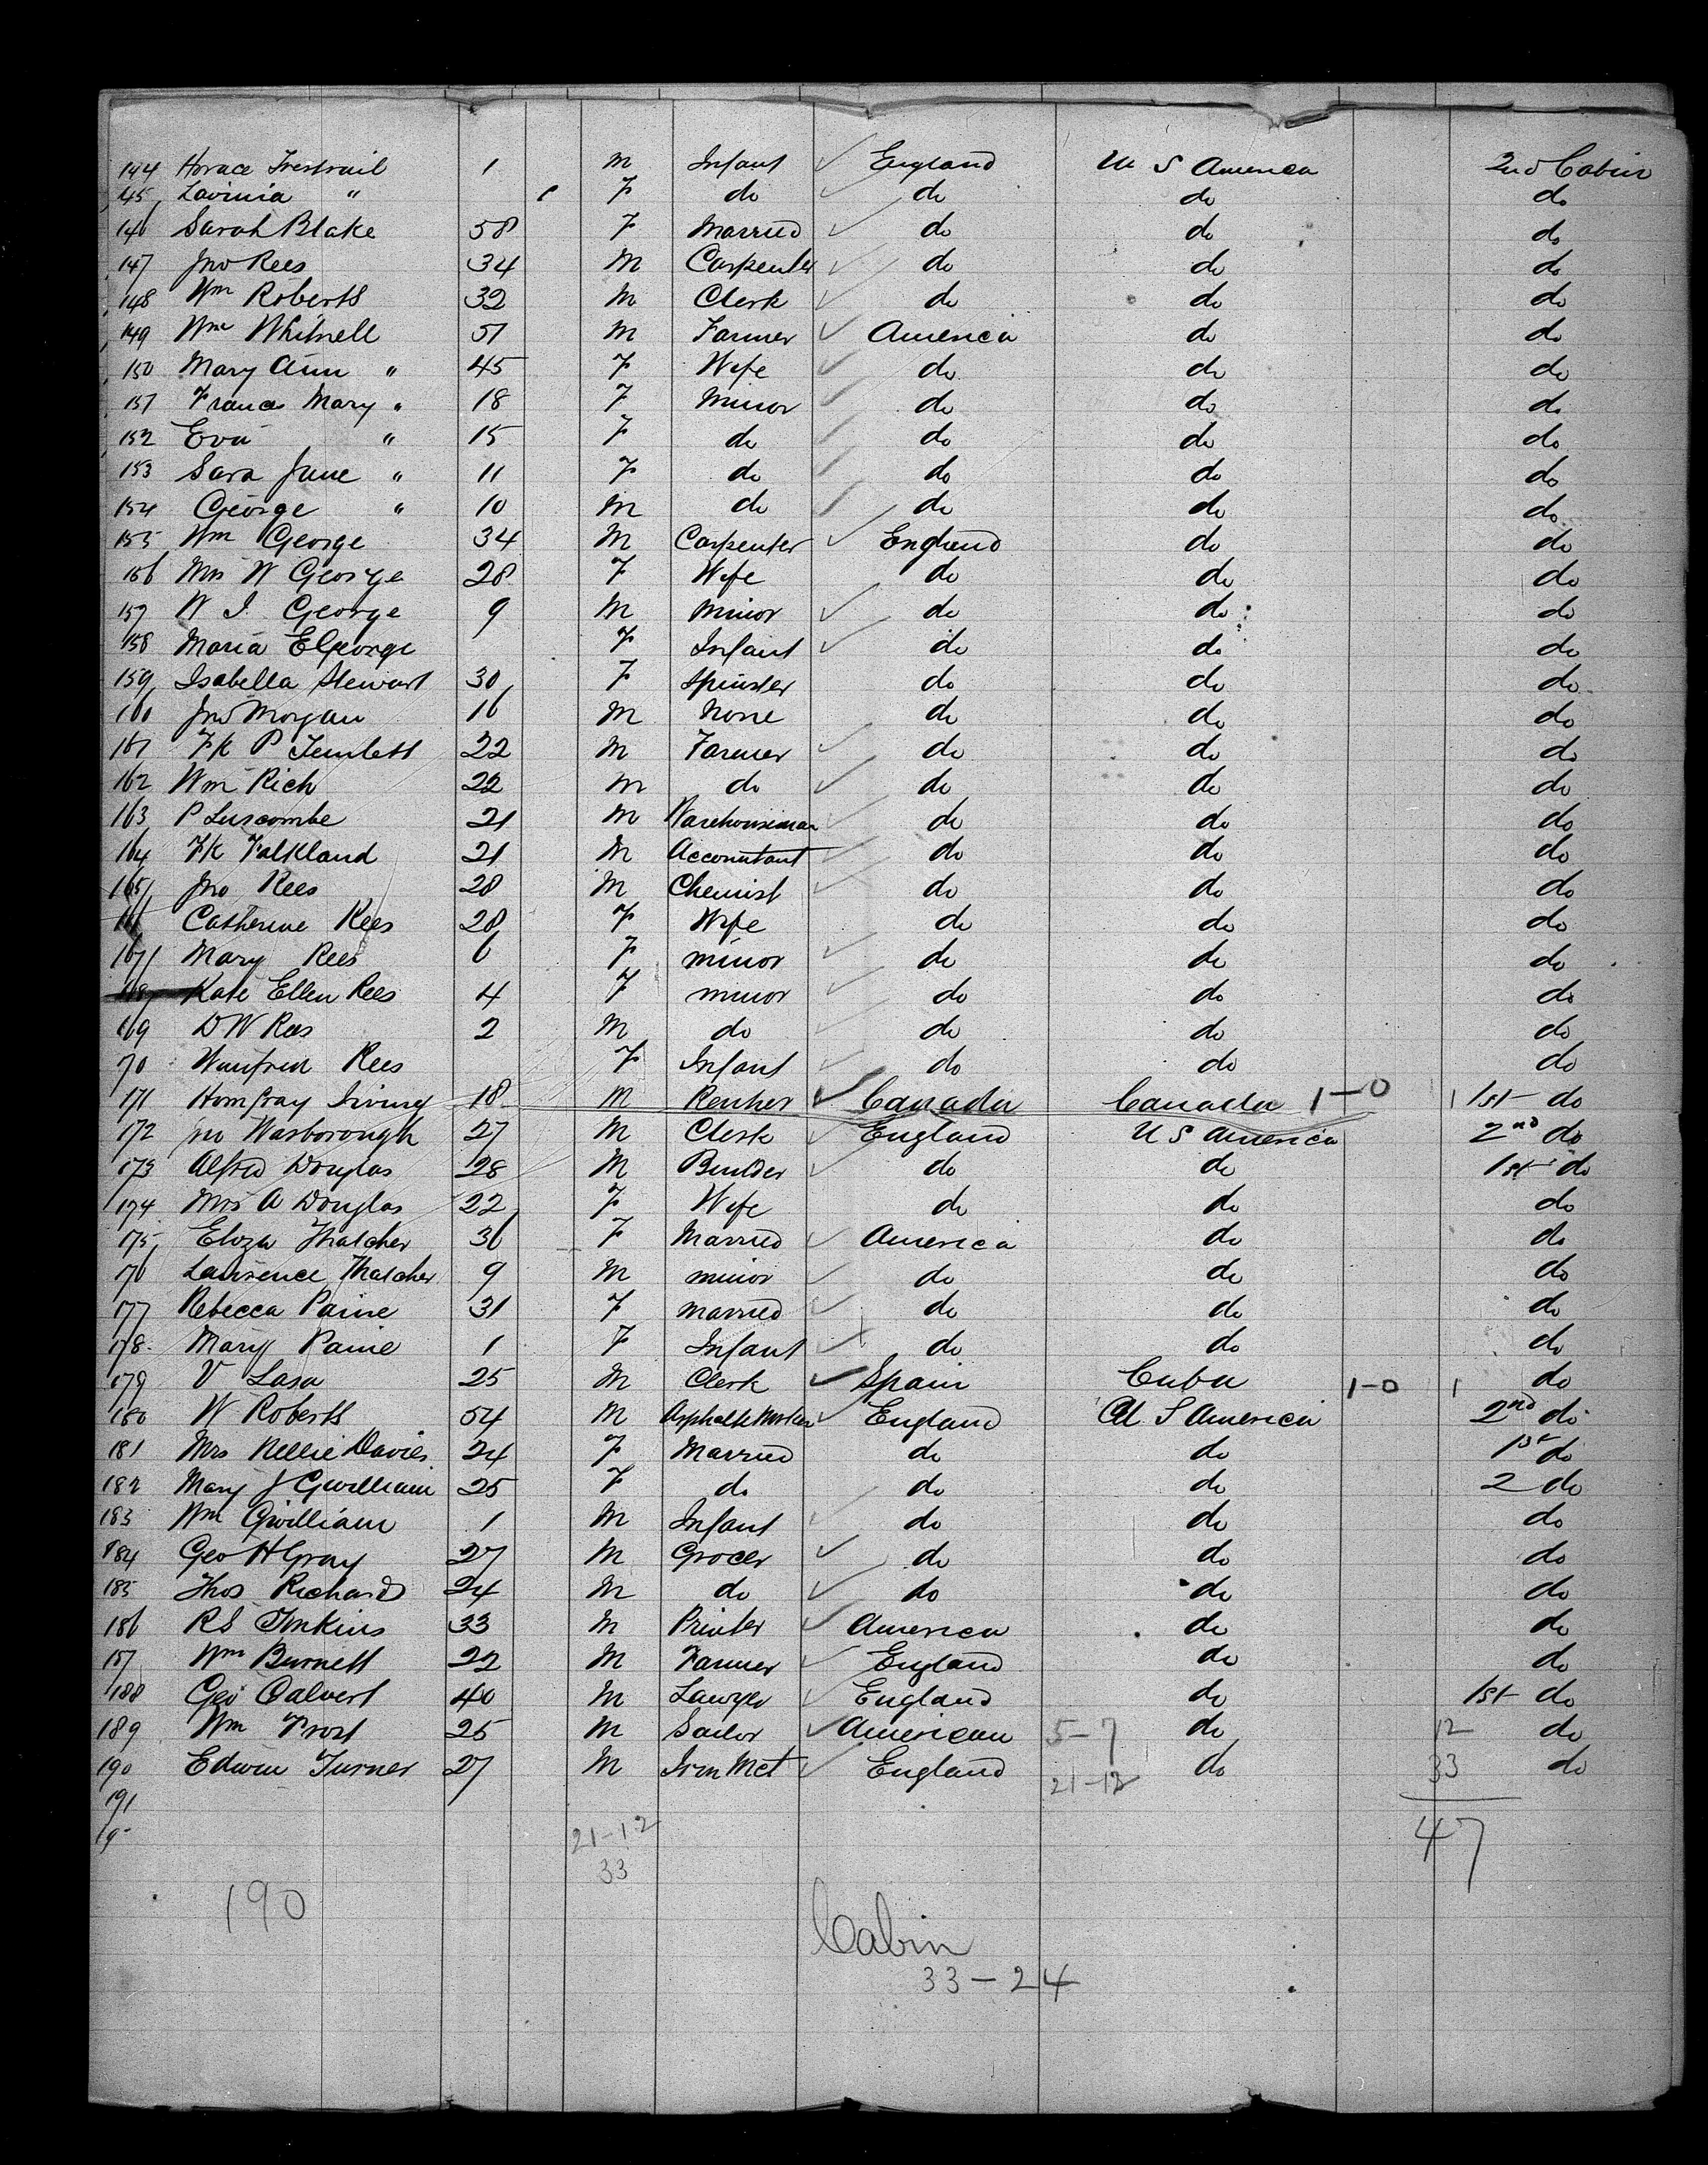 144 Horace Trestrail 1 M Infant ✓ England U S America 2nd Cabin
145 Lavinia " F do ✓ do do do
146 Sarah Blake 58 F Married ✓ do do do
147 Jno Rees 34 M Carpenter ✓ do do do
148 Wm Roberts 32 M Clerk ✓ do do do
149 Wm Whitnell 51 M Farmer ✓ America do do
150 Mary Ann " 45 F Wife ✓ do do do
151 Frances Mary " 18 F Minor ✓ do do do
152 Eva " 15 F do ✓ do do do
153 Sara Jane " 11 F do ✓ do do do
154 George " 10 M do ✓ do do do
155 Wm George 34 M Carpenter ✓ England do do
156 Mrs W George 28 F Wife do do do
157 W J George 9 M Minor ✓ do do do
158 Maria E George F Infant ✓ do do do
159 Isabella Stewart 30 F Spinster do do do
160 Jno Morgan 16 M None do do do
161 Fk P 22 M Farmer ✓ do do do
162 Wm Rich 22 M do ✓ do do do
163 P Luscombe 21 M Warehouseman ✓ do do do
164 Fk Falkland 21 M Accountant ✓ do do do
165 Jno Rees 28 M Chemist ✓ do do do
166 Catherine Rees 28 F Wife do do do
167 Mary Rees 6 F minor ✓ do do do
168 Kate Ellen Rees 4 F minor ✓ do do do
169 D W Rees 2 M do ✓ do do do
70 Winifred Rees F Infant ✓ do do do
171 Homfray Irving 18 M Rancher ✓ Canada Canada 1-0 1 1st do
172 Jno Wasborough 27 M Clerk ✓ England U S America 2nd do
173 Alfred Douglas 28 M Builder ✓ do do 1st do
174 Mrs A Douglas 22 F Wife do do do
175 Eliza Thatcher 36 F Married ✓ America do do
176 Lawrence Thatcher 9 M minor ✓ do do do
177 Rebecca Paine 31 F married ✓ do do do
178 Mary Paine 1 F Infant ✓ do do do
179 V Lasa 25 M Clerk ✓ Spain Cuba 1-0 1 do
180 W Roberts 54 M Asphalte Worker ✓ England U S America 2nd do
181 Mrs Nellie Davies 24 F Married do do 1st do
182 Mary J Gwilliam 25 F do do do 2 do
183 Wm Gwilliam 1 M Infant ✓ do do do
184 Geo H Gray 27 M Grocer ✓ do do do
185 Thos Richards 24 M do ✓ do do do
186 R S Jenkins 33 M Printer ✓ America do do
187 Wm Burnett 22 M Farmer ✓ England do do
188 Geo Calvert 40 M Lawyer ✓ England do 1st do
189 Wm Frost 25 M Sailor ✓ American 5-7 do 12 do
190 Edwin Turner 27 M Iron Mct ✓ England 21-12 do 33 do
191
19
21-12 47
33
190
Cabin
33-24